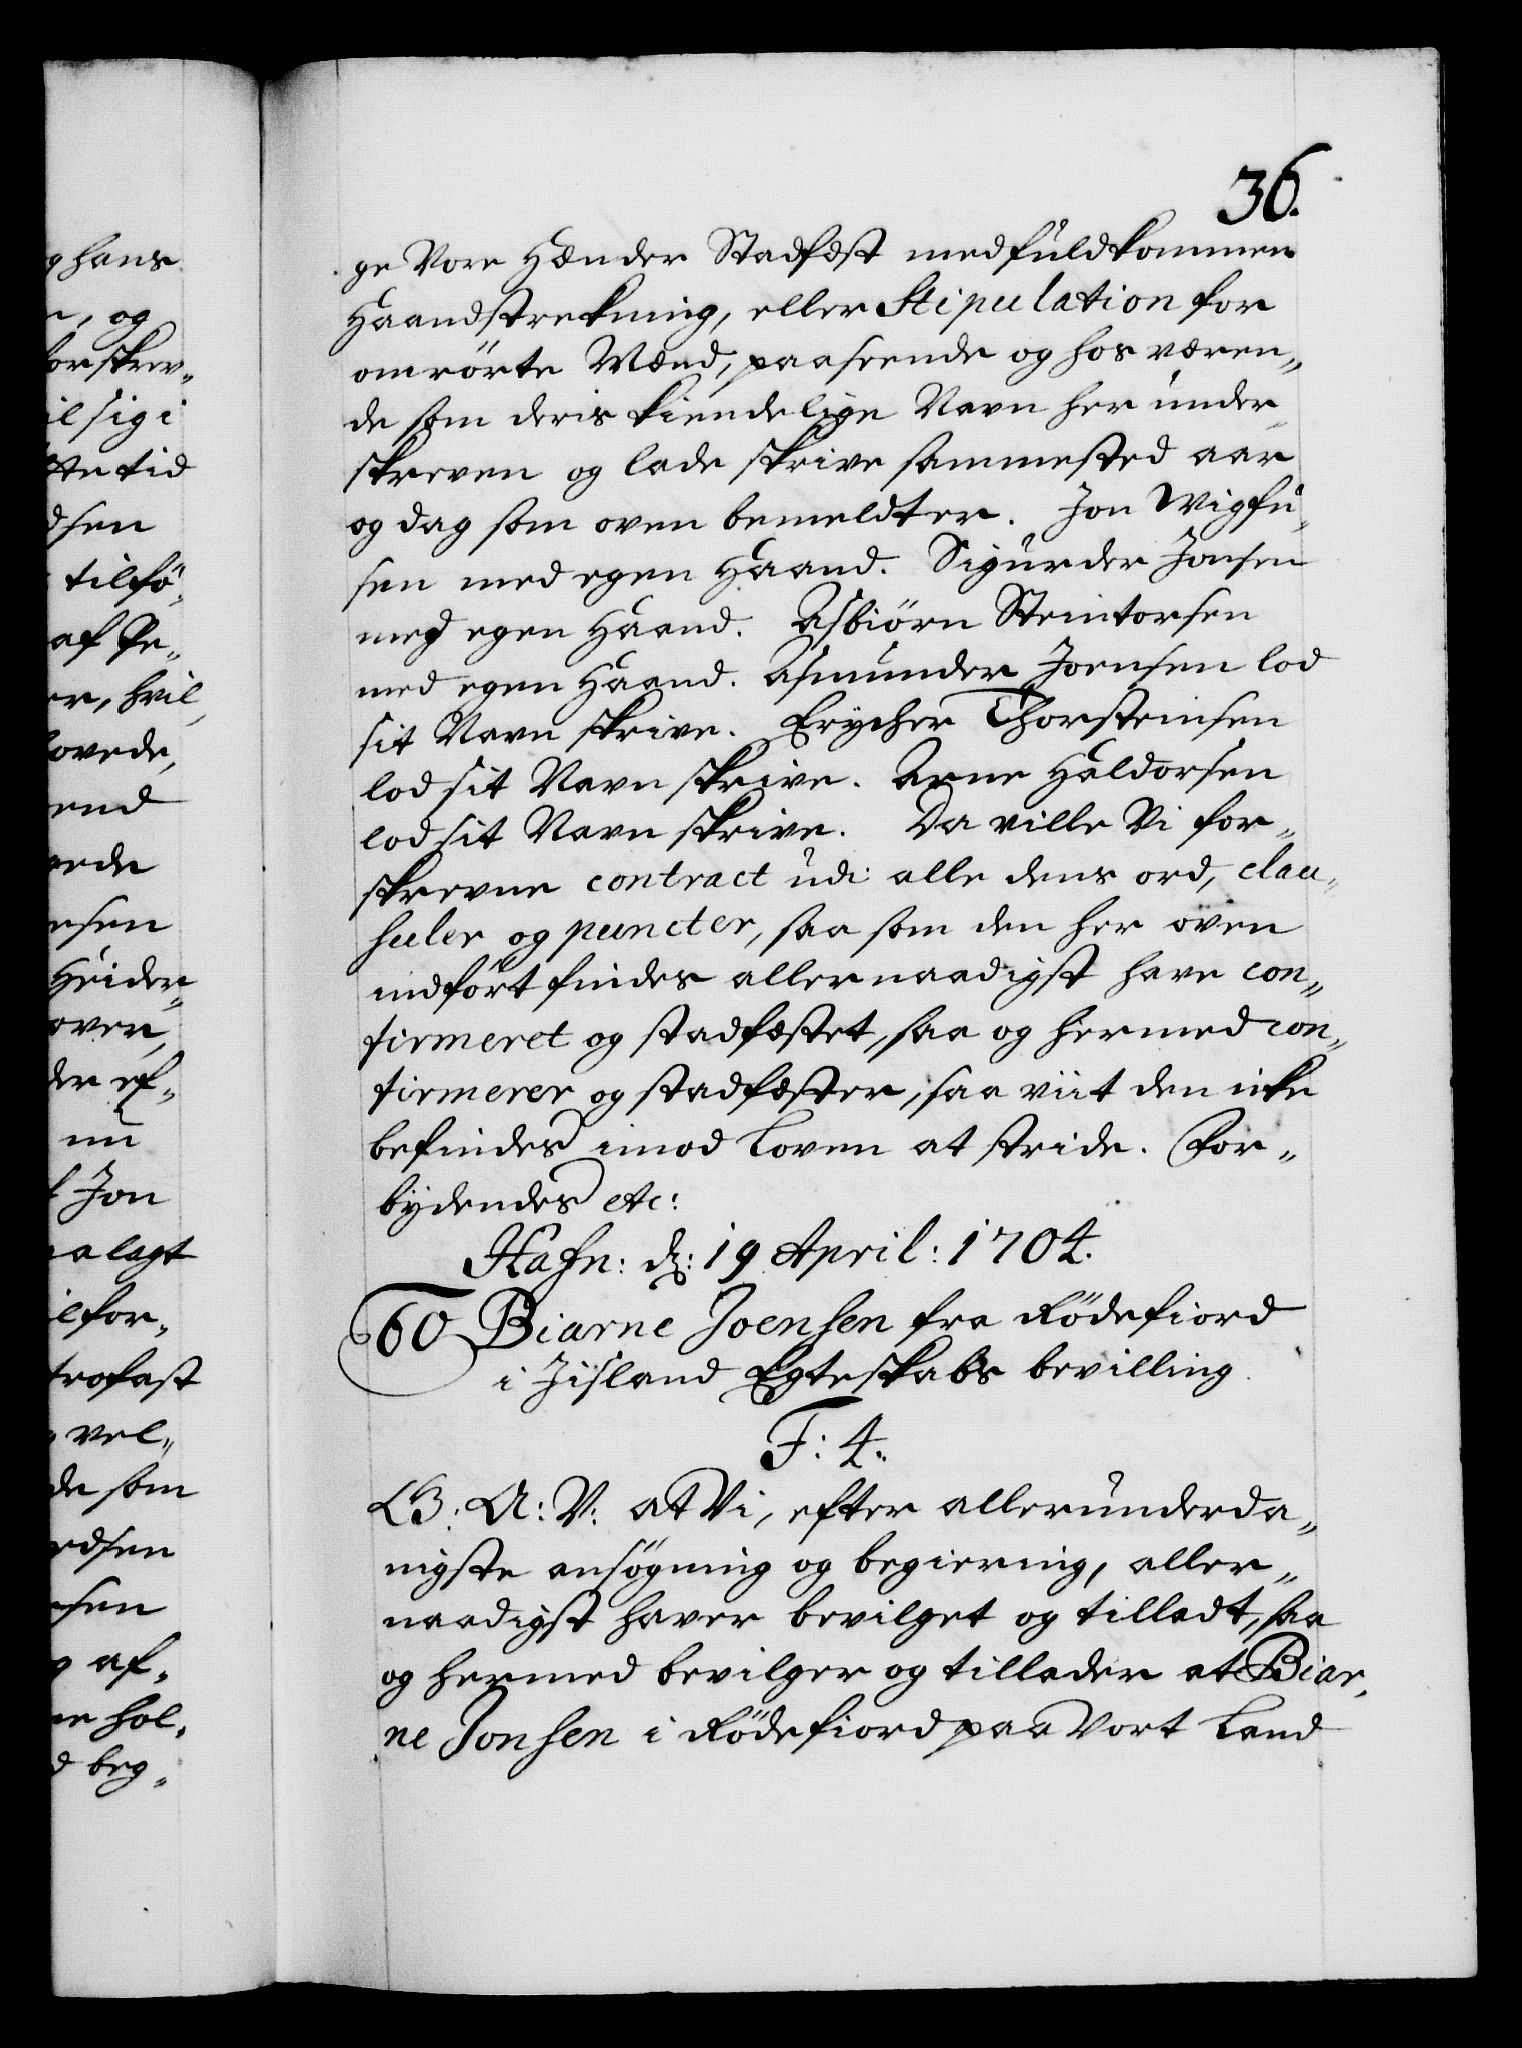 36.
ge Vore Hænder Stadfæst med fuldkommen
Haandstrekning, eller Stipulation for
omrörte Mænd, paaseende og hos væren„
de som deris kiendelige Navn her under„
skreven og lade skrive sammested aar
og dag som oven bemeldter. Jon Wigfu„
sen med egen Haand. Sigurder Jonsen
med egen Haand. Asbiörn Steintorsen
med egen Haand. Asmunder Joensen lod
sit Navn skrive. Erycher Thorsteinsen
lod sit Navn skrive. Arne Haldorsen
lod sit Navn skrive. Da ville Vi for„
skrevne contract udi alle dens ord, clau„
suler og puncter, saa som den her oven
indfört findes allernaadigst have con„
firmeret og stadfæstet, saa og hermed con„
firmerer og stadfæster, saa viit den icke
befindes imod Loven at stride. For„
bydendes etc:
Hafn: d: 19 April: 1704.
60 Biarne Joensen fra Rödefiord
i Jisland Egteskabs bevilling.
F: 4.
G: A: V: at Vi, efter allerunderda„
nigste ansögning og begiering, aller„
naadigst haver bevilget og tilladt, saa
og hermed bevilger og tillader at Biar„
ne Jonsen i Rödefiord paa Vort Land
g hans
, og
forskrev„
il sig i
tte tid
dsen
tilfö„
af Pe„
er, hvil„
lovede,
end
rede
esen
Heider„
over„
der ef„
nu
Jon
a lagt
ilfor„
trofast
vel„
de som
rdsen
sen
af„
ne hol„
d beg„